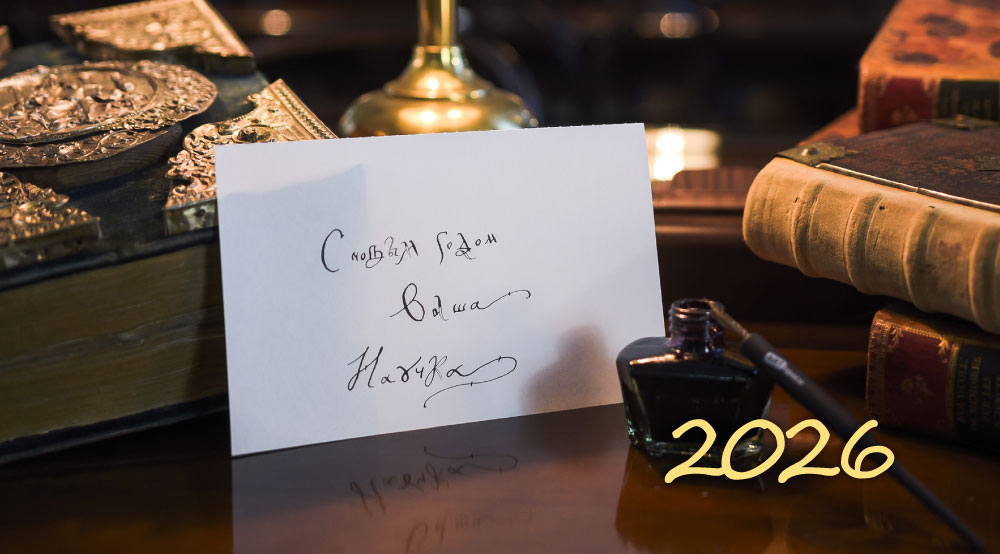 С новым годом
Ваша
Научка
2026